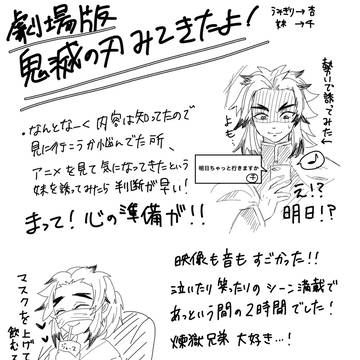 劇場版
鬼滅の刃みてきたよ!
うさぎり→杏
妹→千
勢いで誘ってみた
・なんとなーく内容は知ってたので
見に行こうか悩んでた所、
アニメを見て気になってきたという
妹を誘ってみたら判断が早い!
よもや
明日ちゃっと行きますか
千
え!?
明日!?
まって!心の準備が!!
映像も音もすごかった!!
泣いたり笑ったりのシーン満載で
あっという間の2時間でした!
煉獄兄弟大好き…!
マスクを上げて
飲むて